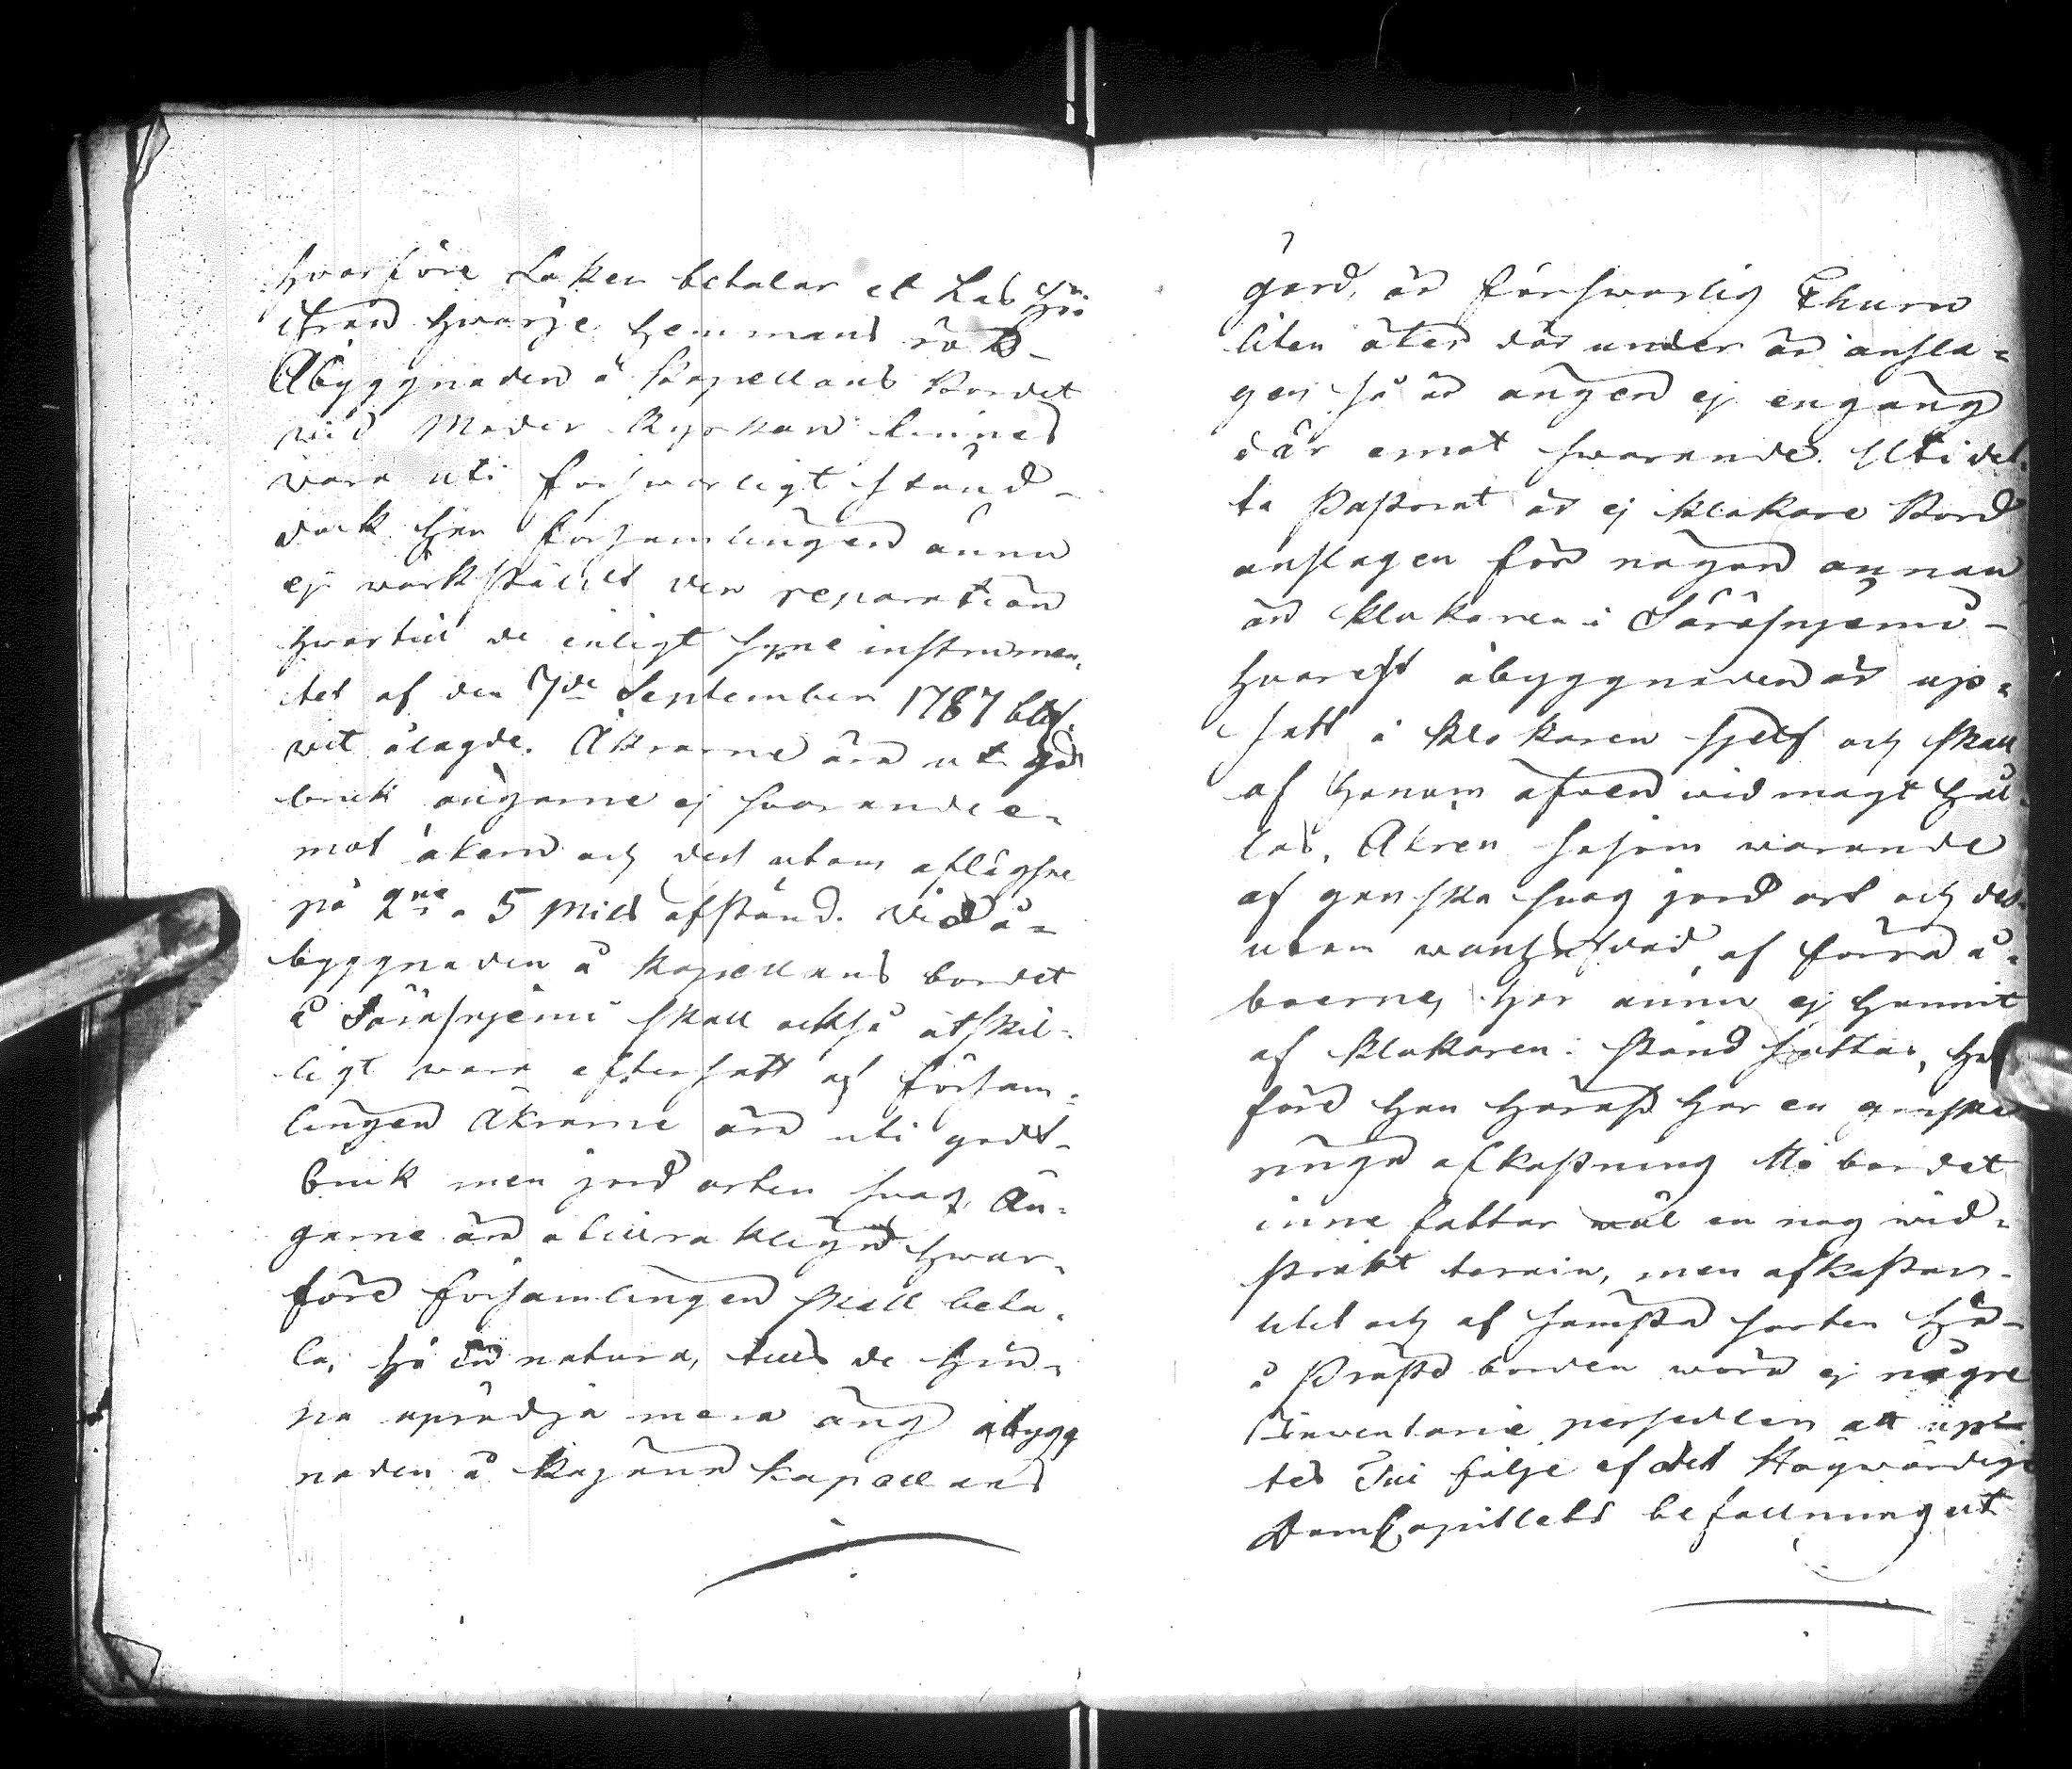 hvarföre Soknen betalar et Las hö
ifrån hwarje hemmans rök
Åbyggnaden å Kapellans Bordet
wid Moder Kyrkan finnes
vara uti försvarligt stånd
dock har församlingen ännu
ej wärkstält den reparation
hwartill de enligt syne instrumen,
tet af den 7de September 1787 blif,
vit ålagde. Åkrarne äro uti god
bruk ängarne ej svarande e-
mot åkern och dess utom aflägsne
på 2ne a 5 Mils afstånd. Vid å-
byggnaden å Kapellans bordet
i Säräsnjemi skall också åtskil-
ligt wara eftersatt af försam-
lingen Åkrarne äro uti godt
bruk men jord arten svag, Än-
garne äro otillräklige hwar-
före församlingen skall beta-
la, hö in natura, tills de hin-
na uprödja mera äng åbygg
naden å Kajana Kapellans
gård, är försvarlig Ehuru
liten åker där under är ansla-
gen så är ängen ej engång
där emot swarande. Uti det-
ta Pastorat är ej Klokare Bord
anslagen för någon annan
än Klokaren i Säräsnjemi -
hvarest åbyggnaden är up-
satt a Klokaren sjelf och skall
af honom äfven wid magt hål-
las, Åkren såsom warande
af ganska svag jord art och des-
utom wanhäfdad, af förra å-
boerne, har ännu ej hunnit
af Klokaren i stånd sättas, hva
före han häraf har en ganska
ringa afkastning Mö bordet
inne fattar wäl en nog wid-
sträkt terrain, men afkastar
litet och af sämsta sorten hö-
å Prästé borden woro ej någre
Inventarie persedlar att uppt
tes Till följe af det Högwördige
DomCapitlets befallning ut